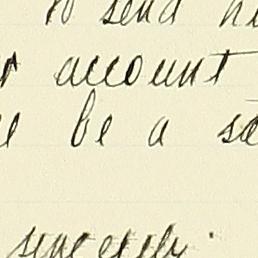 to send
account
be a
sincerely.